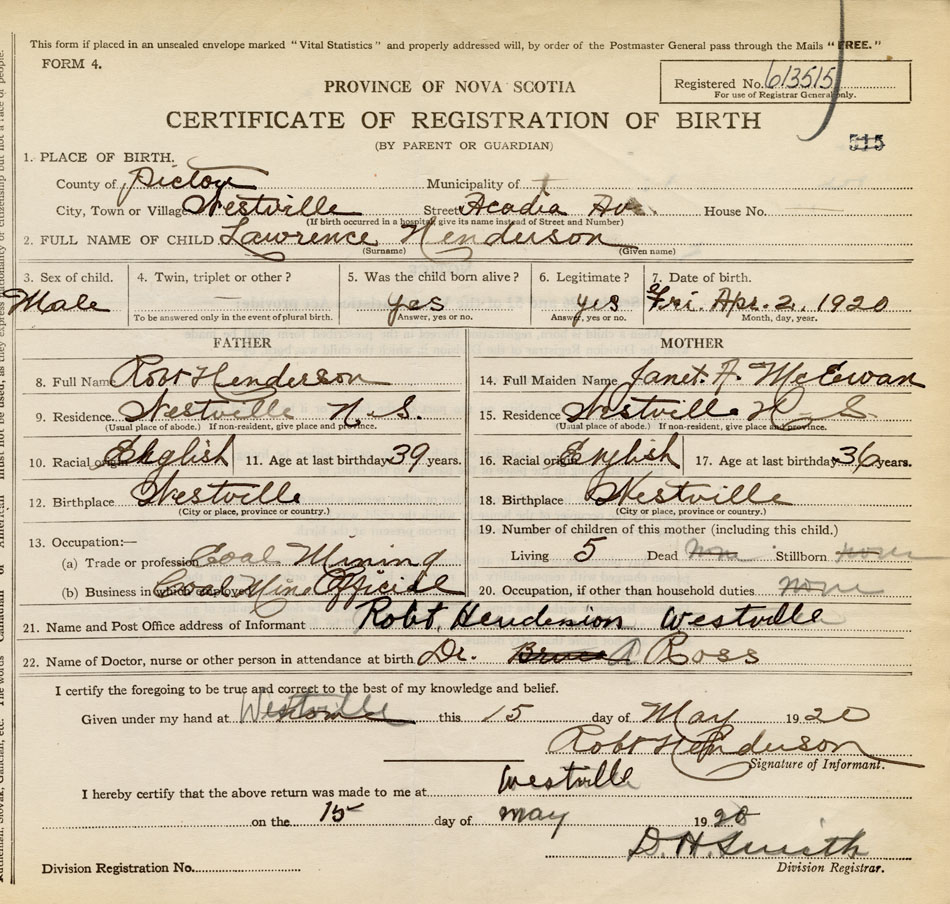 This form if placed in an unsealed envelope marked "Vital Statistics" and properly addressed will, by order of the Postmaster General pass through the Mails "FREE."
FORM 4.
Registered No. 613515
For use of Registrar General only.
PROVINCE OF NOVA SCOTIA
CERTIFICATE OF REGISTRATION OF BIRTH
(BY PARENT OR GUARDIAN)
515
1. PLACE OF BIRTH.
County of Pictou Municipality of
City, Town or Village Westville Street Acadia Av. House No.
(If birth occurred in a hospital, give its name instead of Street and Number)
2. FULL NAME OF CHILD Lawrence Henderson
(Surname) (Given name)
3. Sex of child. 4. Twin, triplet or other? 5. Was the child born alive? 6. Legitimate? 7. Date of birth.
Male — yes yes Fri. Apr. 2, 1920
To be answered only in the event of plural birth. Answer, yes or no. Answer, yes or no. Month, day, year.
FATHER
8. Full Name Robt Henderson
9. Residence. Westville N.S.
(Usual place of abode.) If non-resident, give place and province.
10. Racial origin English 11. Age at last birthday 39 years.
12. Birthplace Westville
(City or place, province or country.)
13. Occupation:—
(a) Trade or profession Coal Mining
(b) Business in which employed Coal Mine Official
MOTHER
14. Full Maiden Name Janet. A. McEwan
15. Residence Westville N.S.
(Usual place of abode.) If non-resident, give place and province.
16. Racial origin English 17. Age at last birthday 36 years.
18. Birthplace Westville
(City or place, province or country.)
19. Number of children of this mother (including this child.)
Living 5 Dead None Stillborn none
20. Occupation, if other than household duties none
21. Name and Post Office address of Informant Robt. Henderson Westville
22. Name of Doctor, nurse or other person in attendance at birth Dr. Bruce A Ross
I certify the foregoing to be true and correct to the best of my knowledge and belief.
Given under my hand at Westville this 15 day of May 1920
Robt Henderson
Signature of Informant.
I hereby certify that the above return was made to me at Westville
on the 15 day of may 1920
D. H. Smith
Division Registration No. Division Registrar.